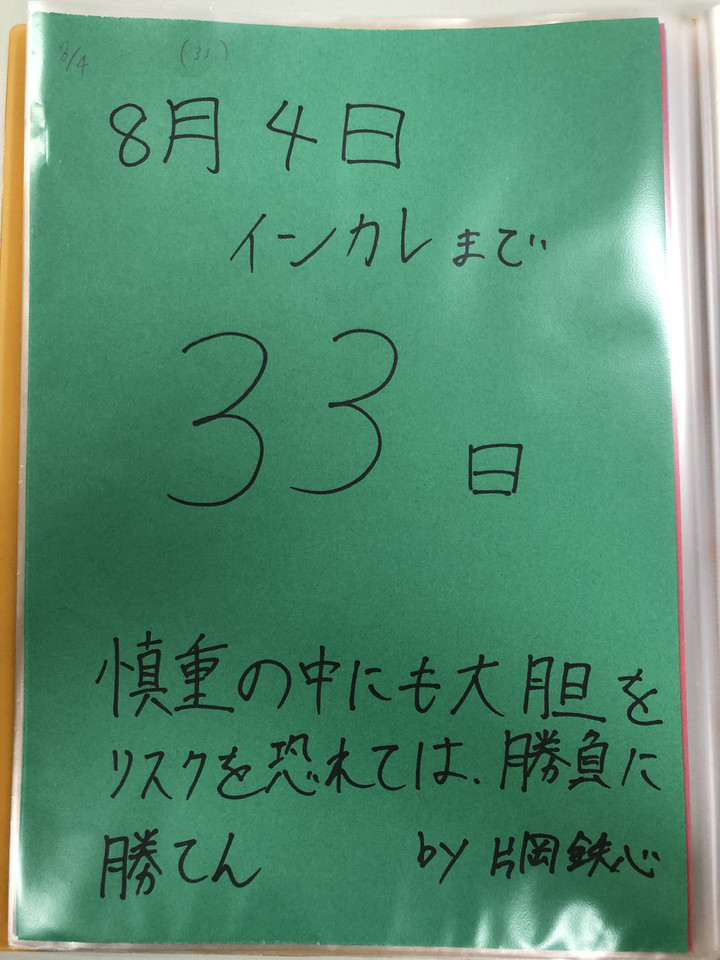 8/4 (31)
8月4日
インカレまで
33日
慎重の中にも大胆を
リスクを恐れては、勝負に
勝てん by 片岡鉄心